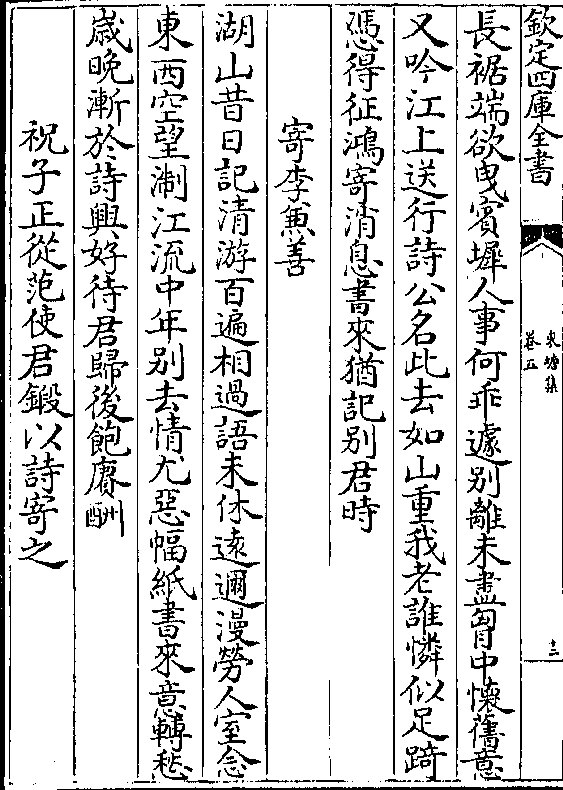 欽定四庫全書
東塘集
卷五
十二
長裾端欲曳賓墀人事何乖遽別離未盡胷中懷舊意
又吟江上送行詩公名此去如山重我老誰憐似足踦
憑得征鴻寄消息書來猶記别君時
寄李兼善
湖山昔日記清游百遍相過語未休逺邇漫勞人室念
東西空望淛江流中年别去情尤惡幅紙書來意轉愁
嵗晩漸於詩興好待君歸後飽賡酬
祝子正從范使君鍛以詩寄之